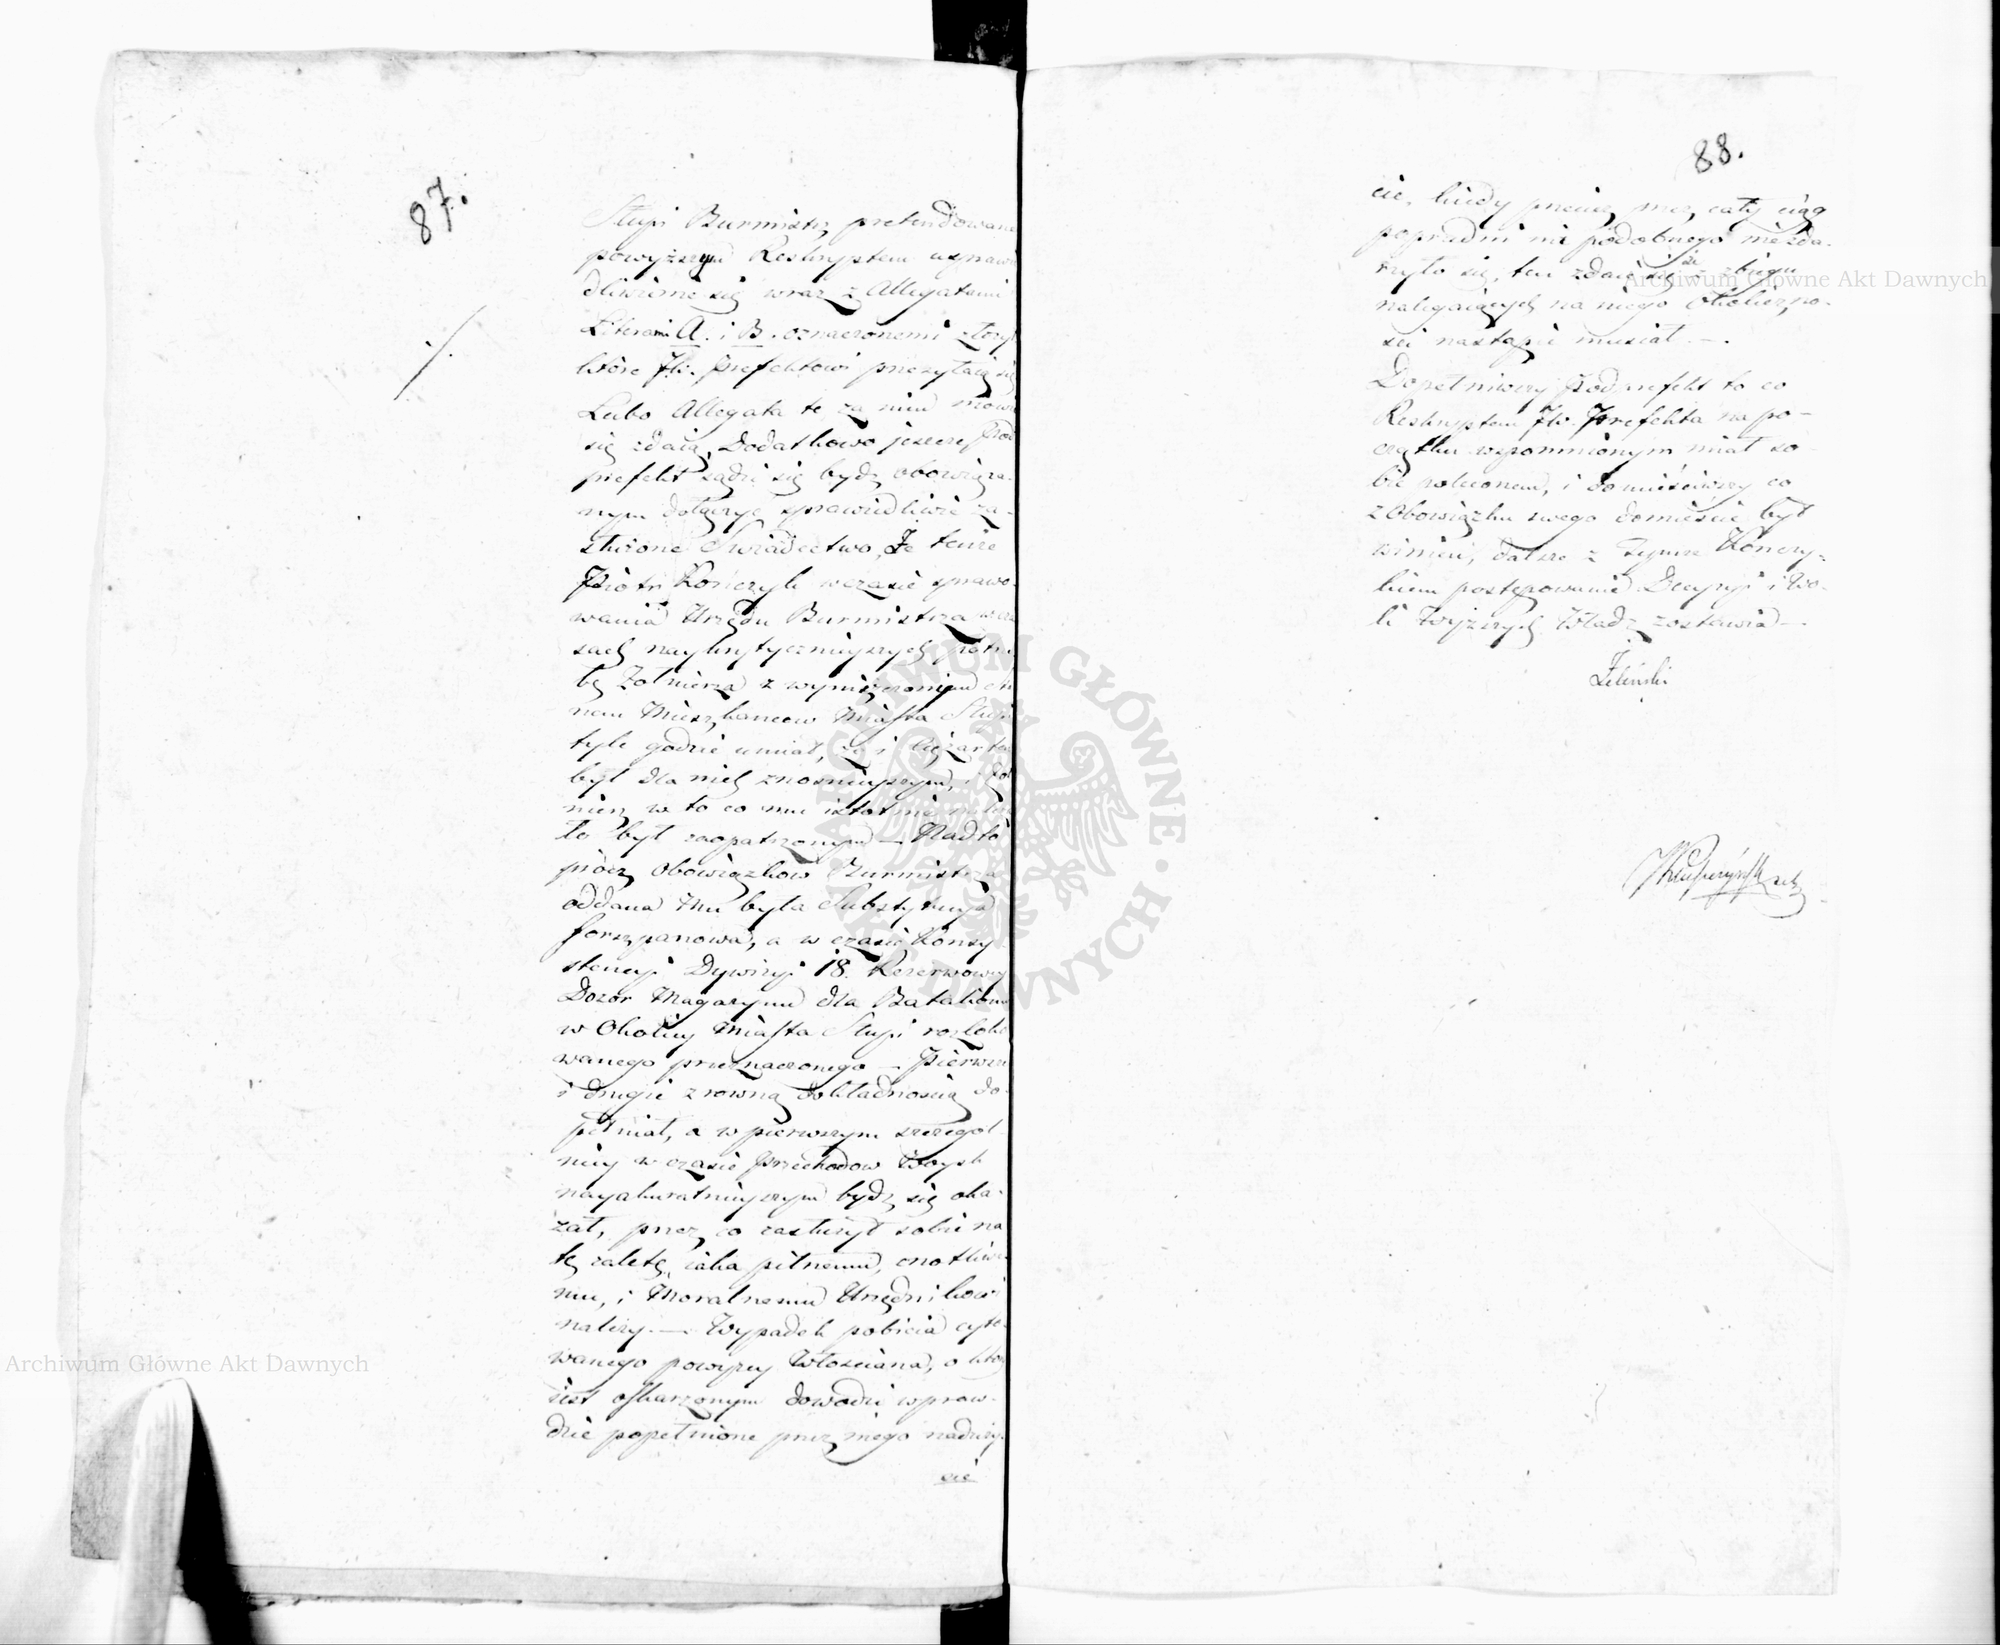 87.
Słupi Burmistrz pretendowane
powyższym Reskryptem usprawie
dliwienie się wraz z Allegatami
Literami A. i B. oznaczonemi złożył
które JW. Prefektowi przesyłaią się
Lubo Allegata te za nim mówić
się zdaią, Dodatkowo jeszcze Pod
prefekt sądzi się bydź obowiąza-
nym dołączyć sprawiedliwie za-
służone Swiadectwo, Że tenże
Piotr Kończyk w czasie sprawo-
wania Urzędu Burmistrza w cza
sach naykrytycznieyszych potrze
bę Żołnierza z wyniszczonym
nem Mieszkancow Miasta Słupi
tyle godzić umiał, że i ciężar ten
był dla nich znośnieyszym, i Żoł
nierz w to co mu istotnie
ło był zaopatrzonym — Nadto
prócz Obowiązkow Burmistrza
oddana Mu była Substytucyia
forszpanowa, a w czasie Konsy
stencyi Dywizyi 18. Rezerwowey
Dozor Magazynu dla Batalionu
w Okolicy Miasta Słupi rozloko
wanego przeznaczonego — Pierwsze
i drugie z rowną dokładnością do-
pełniał, a w pierwszym szczegol-
niey w czasie Przechodow Woysk
nayakuratnieyszym bydź się oka-
zał, przez co zasłużył sobie na
tę zaletę, iaka pilnemu, cnotliwe
mu, i Moralnemu Urzędnikowi
należy. — Wypadek pobicia cyto-
wanego powyżey Włościana, o który
iest oskarżonym dowodzi wpraw-
dzie popełnione przez niego naduży-
cie
88.
cie, kiedy przecież przez cały ciąg
poprzedni nic podobnego niezda-
rzyło się, ten zdaie się że z zbiegu
nalegaiących na niego okoliczno-
sci nastąpić musiał. —.
Dopełniwszy Podprefekt to co
Reskryptem JW. Prefekta na po-
czątku wspomnionym miał so-
bie poleconem, i domieściwszy co
z Obowiązku swego domieścić był
winien, dalsze z Tymże Kończy-
kiem postępowanie Decyzyi i Wo-
li Wyższych Władz zostawia —
Zeliński